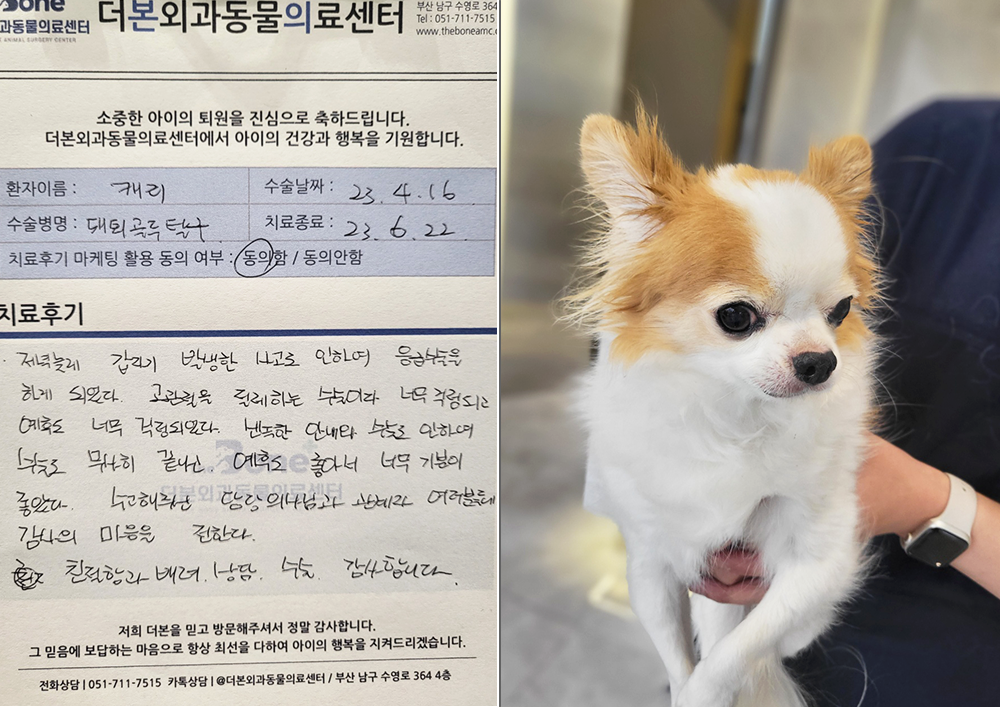 Bone
과동물의료센터
ANIMAL SURGERY CENTER
더본외과동물의료센터
부산 남구 수영로 364
Tel : 051-711-7515
www.theboneamc.c
소중한 아이의 퇴원을 진심으로 축하드립니다.
더본외과동물의료센터에서 아이의 건강과 행복을 기원합니다.
환자이름 : 캐리
수술날짜 : 23. 4. 16
수술병명 : 대퇴골두탈구
치료종료 : 23. 6. 22
치료후기 마케팅 활용 동의 여부 : 동의함 / 동의안함
치료후기
갑자기 발생한 사고로 인하여 응급수술을
하게 되었다. 고관절을 절제하는 수술이라 너무 걱정되고
예후도 너무 걱정되었다. 안내와 수술로 인하여
수술도 무사히 끝나고 예후도 좋아서 너무 기분이
좋았다. 수고해주신 담당의사님과 관계자 여러분들께
감사의 마음을 전한다.
친절함과 배려, 상담, 수술 감사합니다.
Bone
더본외과동물의료센터
저희 더본을 믿고 방문해주셔서 정말 감사합니다.
그 믿음에 보답하는 마음으로 항상 최선을 다하여 아이의 행복을 지켜드리겠습니다.
전화상담 | 051-711-7515 카톡상담 | @더본외과동물의료센터 / 부산 남구 수영로 364 4층